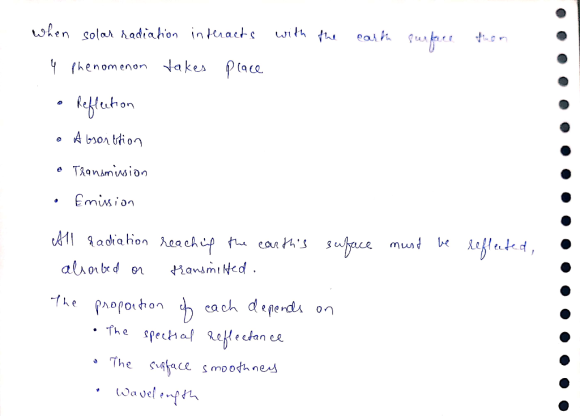 When solar radiation interacts with the earth surface then
4 phenomenon takes place
• Reflection
• Absorbtion
• Transmission
• Emission
All radiation reaching the earth's suface must be reflected,
absorbed or transmitted.
The proportion of each depends on
• The spectral reflectance
• The surface smoothness
• Wavelength